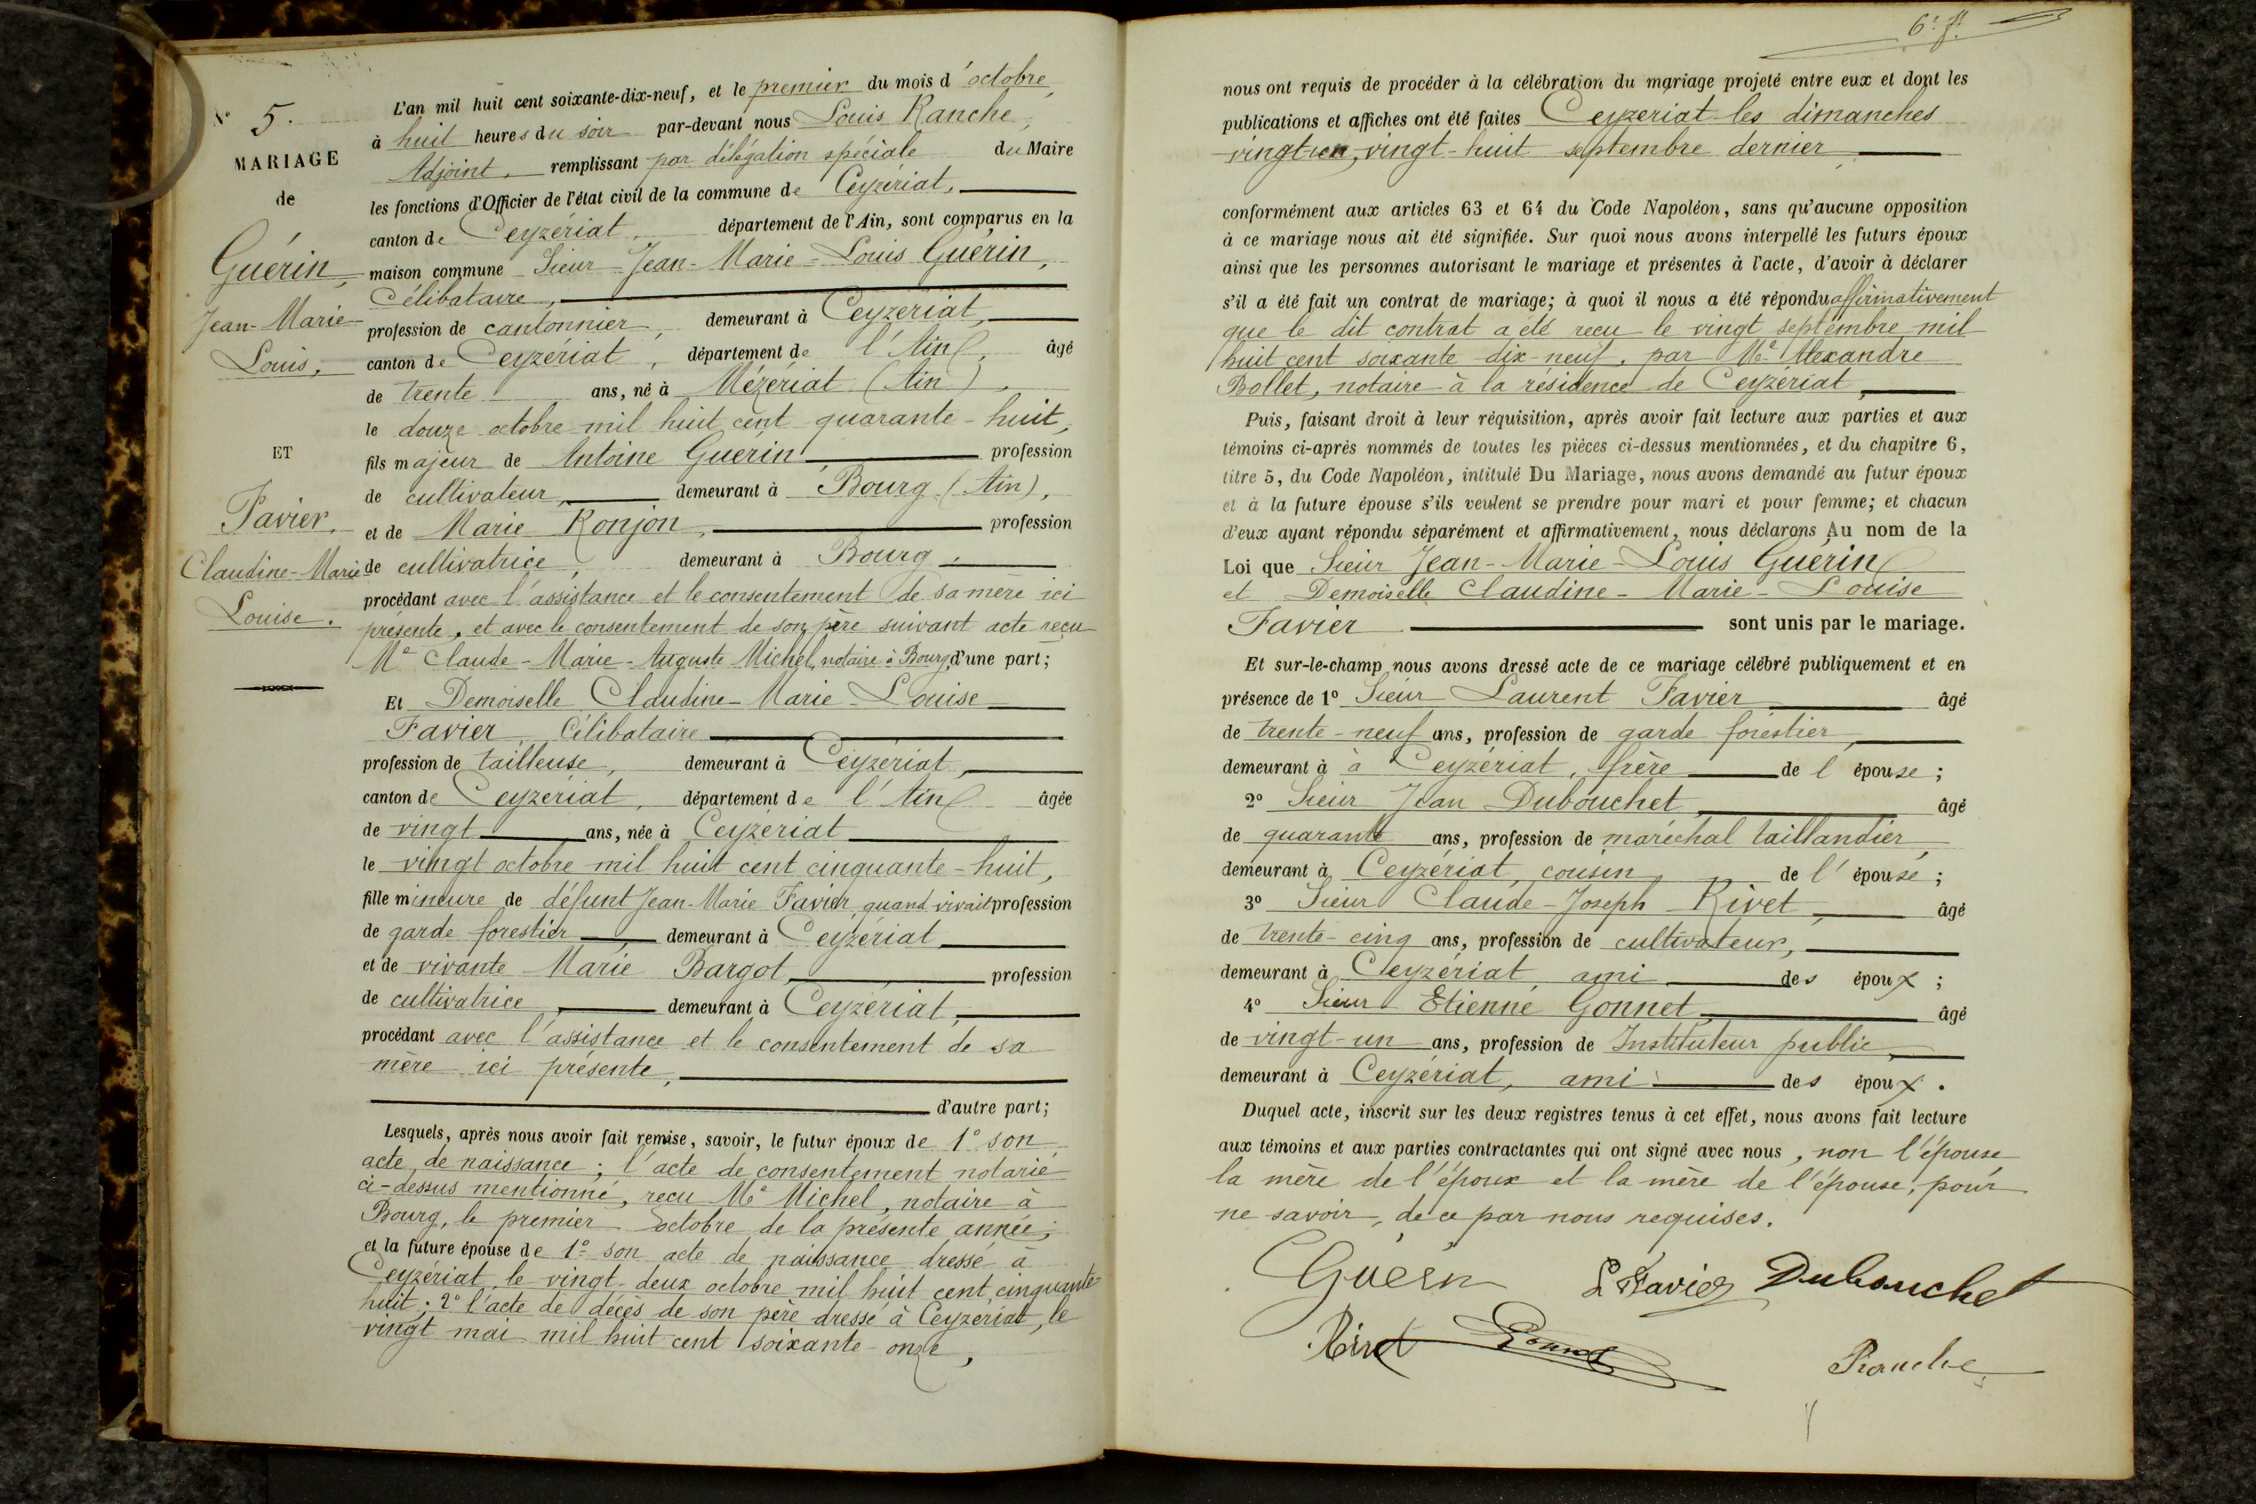 N° 5.
MARIAGE
de
Guérin,
Jean-Marie
Louis,
ET
Favier,
Claudine-Marie
Louise.
L'an mil huit cent soixante-dix-neuf, et le premier du mois d'octobre,
à huit heures du soir par-devant nous Louis Ranche,
Adjoint, remplissant par délégation spéciale du Maire
les fonctions d'Officier de l'état civil de la commune de Ceyzériat,
canton de Ceyzériat, département de l'Ain, sont comparus en la
maison commune Sieur Jean-Marie-Louis Guérin,
Célibataire,
profession de cantonnier, demeurant à Ceyzériat,
canton de Ceyzériat, département de l'Ain, âgé
de trente ans, né à Mézériat (Ain),
le douze octobre mil huit cent quarante-huit,
fils majeur de Antoine Guérin, profession
de cultivateur, demeurant à Bourg (Ain),
et de Marie Ronjon, profession
de cultivatrice, demeurant à Bourg,
procédant avec l'assistance et le consentement de sa mère ici
présente, et avec le consentement de son père suivant acte reçu
Me Claude-Marie-Auguste Michel, notaire à Bourg, d'une part;
Et Demoiselle Claudine-Marie-Louise
Favier, Célibataire
profession de tailleuse, demeurant à Ceyzériat,
canton de Ceyzériat, département de l'Ain âgée
de vingt ans, née à Ceyzériat
le vingt octobre mil huit cent cinquante-huit,
fille mineure de défunt Jean-Marie Favier, quand vivait profession
de garde forestier demeurant à Ceyzériat
et de vivante Marie Bargot, profession
de cultivatrice, demeurant à Ceyzériat,
procédant avec l'assistance et le consentement de sa
mère ici présente,
d'autre part;
Lesquels, après nous avoir fait remise, savoir, le futur époux de 1° son
acte de naissance; l'acte de consentement notarié
ci-dessus mentionné, reçu Me Michel, notaire à
Bourg, le premier octobre de la présente année;
et la future épouse de 1° son acte de naissance dressé à
Ceyzériat le vingt-deux octobre mil huit cent cinquante-
huit; 2° l'acte de décès de son père dressé à Ceyzériat, le
vingt mai mil huit cent soixante-onze,
6e ft
nous ont requis de procéder à la célébration du mariage projeté entre eux et dont les
publications et affiches ont été faites Ceyzériat les dimanches
vingt un, vingt-huit septembre dernier
conformément aux articles 63 et 64 du Code Napoléon, sans qu'aucune opposition
à ce mariage nous ait été signifiée. Sur quoi nous avons interpellé les futurs époux
ainsi que les personnes autorisant le mariage et présentes à l'acte, d'avoir à déclarer
s'il a été fait un contrat de mariage; à quoi il nous a été répondu affirmativement
que le dit contrat a été reçu le vingt septembre mil
huit cent soixante dix-neuf, par Me Alexandre
Bollet, notaire à la résidence de Ceyzériat,
Puis, faisant droit à leur réquisition, après avoir fait lecture aux parties et aux
témoins ci-après nommés de toutes les pièces ci-dessus mentionnées, et du chapitre 6,
titre 5, du Code Napoléon, intitulé Du Mariage, nous avons demandé au futur époux
et à la future épouse s'ils veulent se prendre pour mari et pour femme; et chacun
d'eux ayant répondu séparément et affirmativement, nous déclarons Au nom de la
Loi que Sieur Jean-Marie-Louis Guérin
et Demoiselle Claudine-Marie-Louise
Favier sont unis par le mariage.
Et sur-le-champ nous avons dressé acte de ce mariage célébré publiquement et en
présence de 1° Sieur Laurent Favier âgé
de trente-neuf ans, profession de garde forestier,
demeurant à à Ceyzériat, frère de l'épouse;
2° Sieur Jean Dubouchet âgé
de quarante ans, profession de maréchal taillandier,
demeurant à Ceyzériat, cousin de l'épouse;
3° Sieur Claude-Joseph Rivet, âgé
de trente-cinq ans, profession de cultivateur,
demeurant à Ceyzériat, ami des époux;
4° Sieur Etienne Gonnet, âgé
de vingt-un ans, profession de Instituteur public,
demeurant à Ceyzériat, ami des époux.
Duquel acte, inscrit sur les deux registres tenus à cet effet, nous avons fait lecture
aux témoins et aux parties contractantes qui ont signé avec nous, non l'épouse
la mère de l'époux et la mère de l'épouse, pour
ne savoir, de ce par nous requises.
Guérin L Favier Dubouchet
Rivet Gonnet Ranche